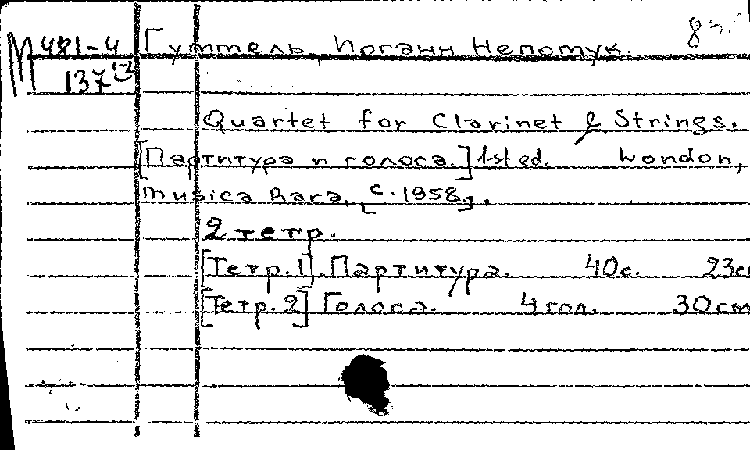 М 481-4 Гуммель, Иоганн Непомук.
137
Quartet for Clarinet & Strings.
[Партитура и голоса.] 1st ed. London,
Musica Rara, [c. 1958.].
2 тетр.
[Тетр. 1]. Партитура. 40с. 23cm
[Тетр. 2] Голоса. 4 гол. 30cm